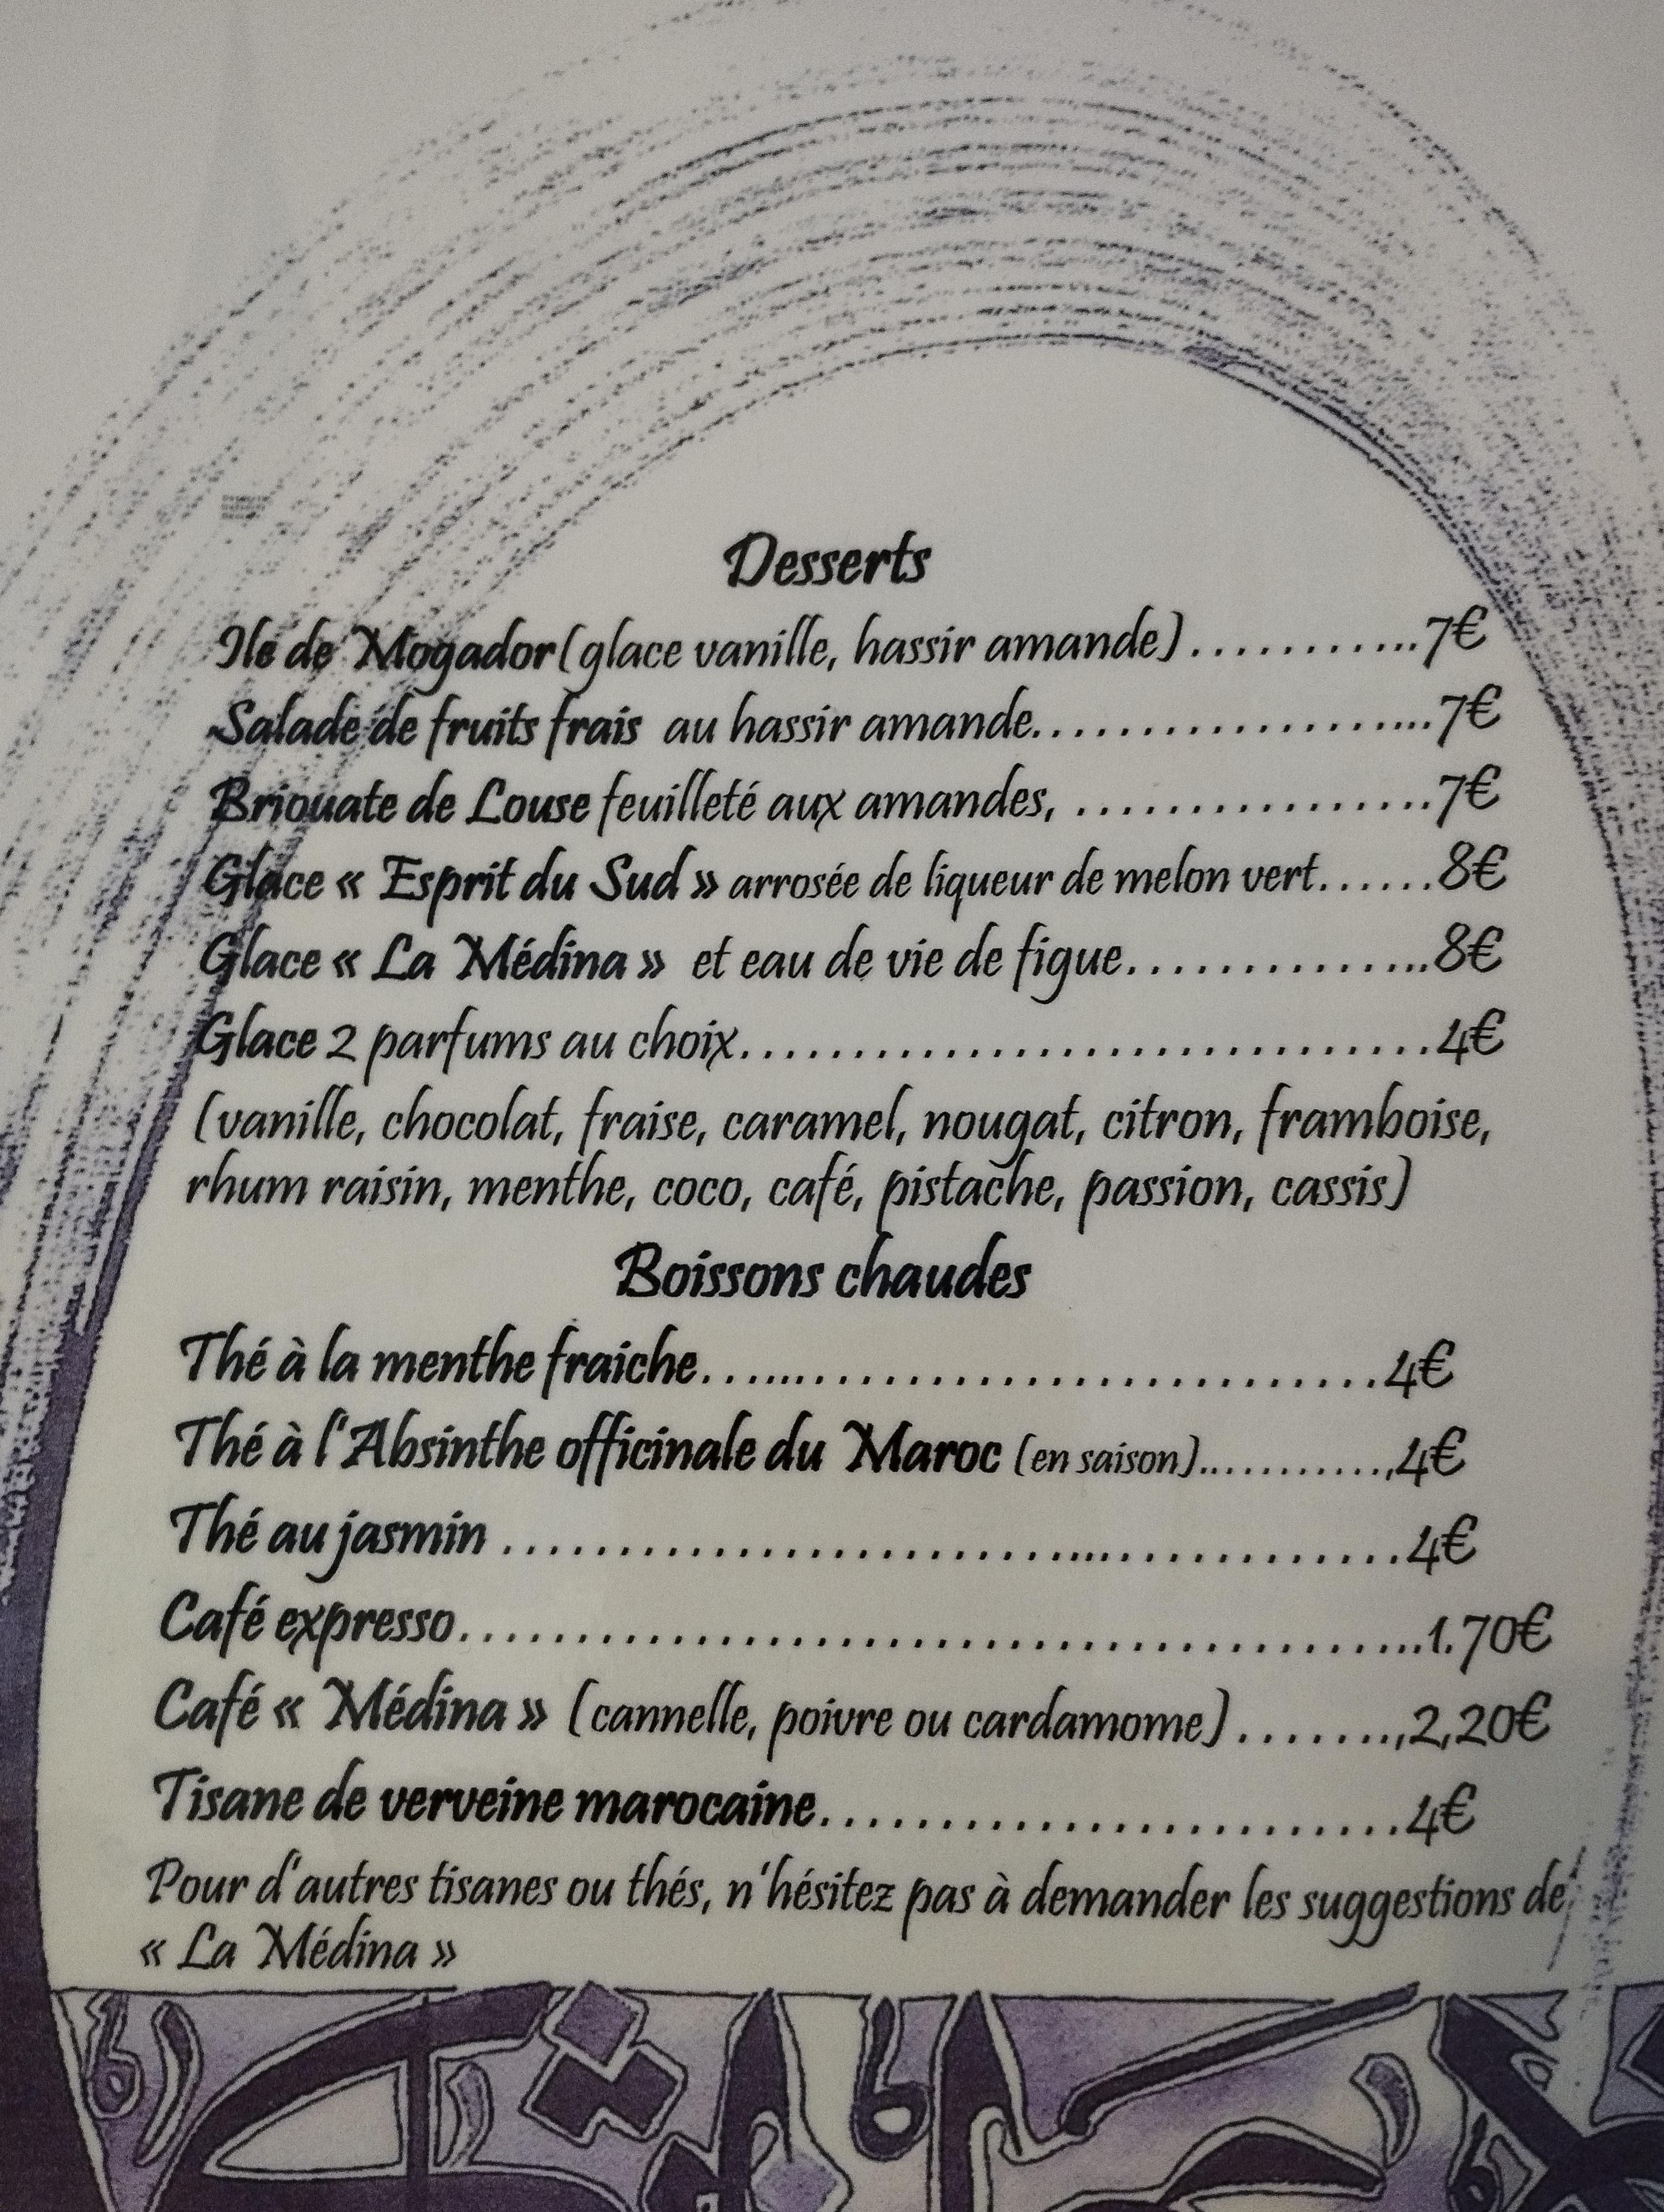 Desserts
Ile de Mogador(glace vanille, hassir amande)..............7€
Salade de fruits frais au hassir amande.....................7€
Briouate de Louse feuilleté aux amandes, .................7€
Glace « Esprit du Sud » arrosée de liqueur de melon vert.......8€
Glace « La Médina » et eau de vie de figue..................8€
Glace 2 parfums au choix................................4€
(vanille, chocolat, fraise, caramel, nougat, citron, framboise,
rhum raisin, menthe, coco, café, pistache, passion, cassis)
Boissons chaudes
Thé à la menthe fraiche................................4€
Thé à l'Absinthe officinale du Maroc (en saison)............,4€
Thé au jasmin ..........................................4€
Café expresso.............................................1.70€
Café « Médina » (cannelle, poivre ou cardamome)........,2,20€
Tisane de verveine marocaine.........................4€
Pour d'autres tisanes ou thés, n'hésitez pas à demander les suggestions de
« La Médina »